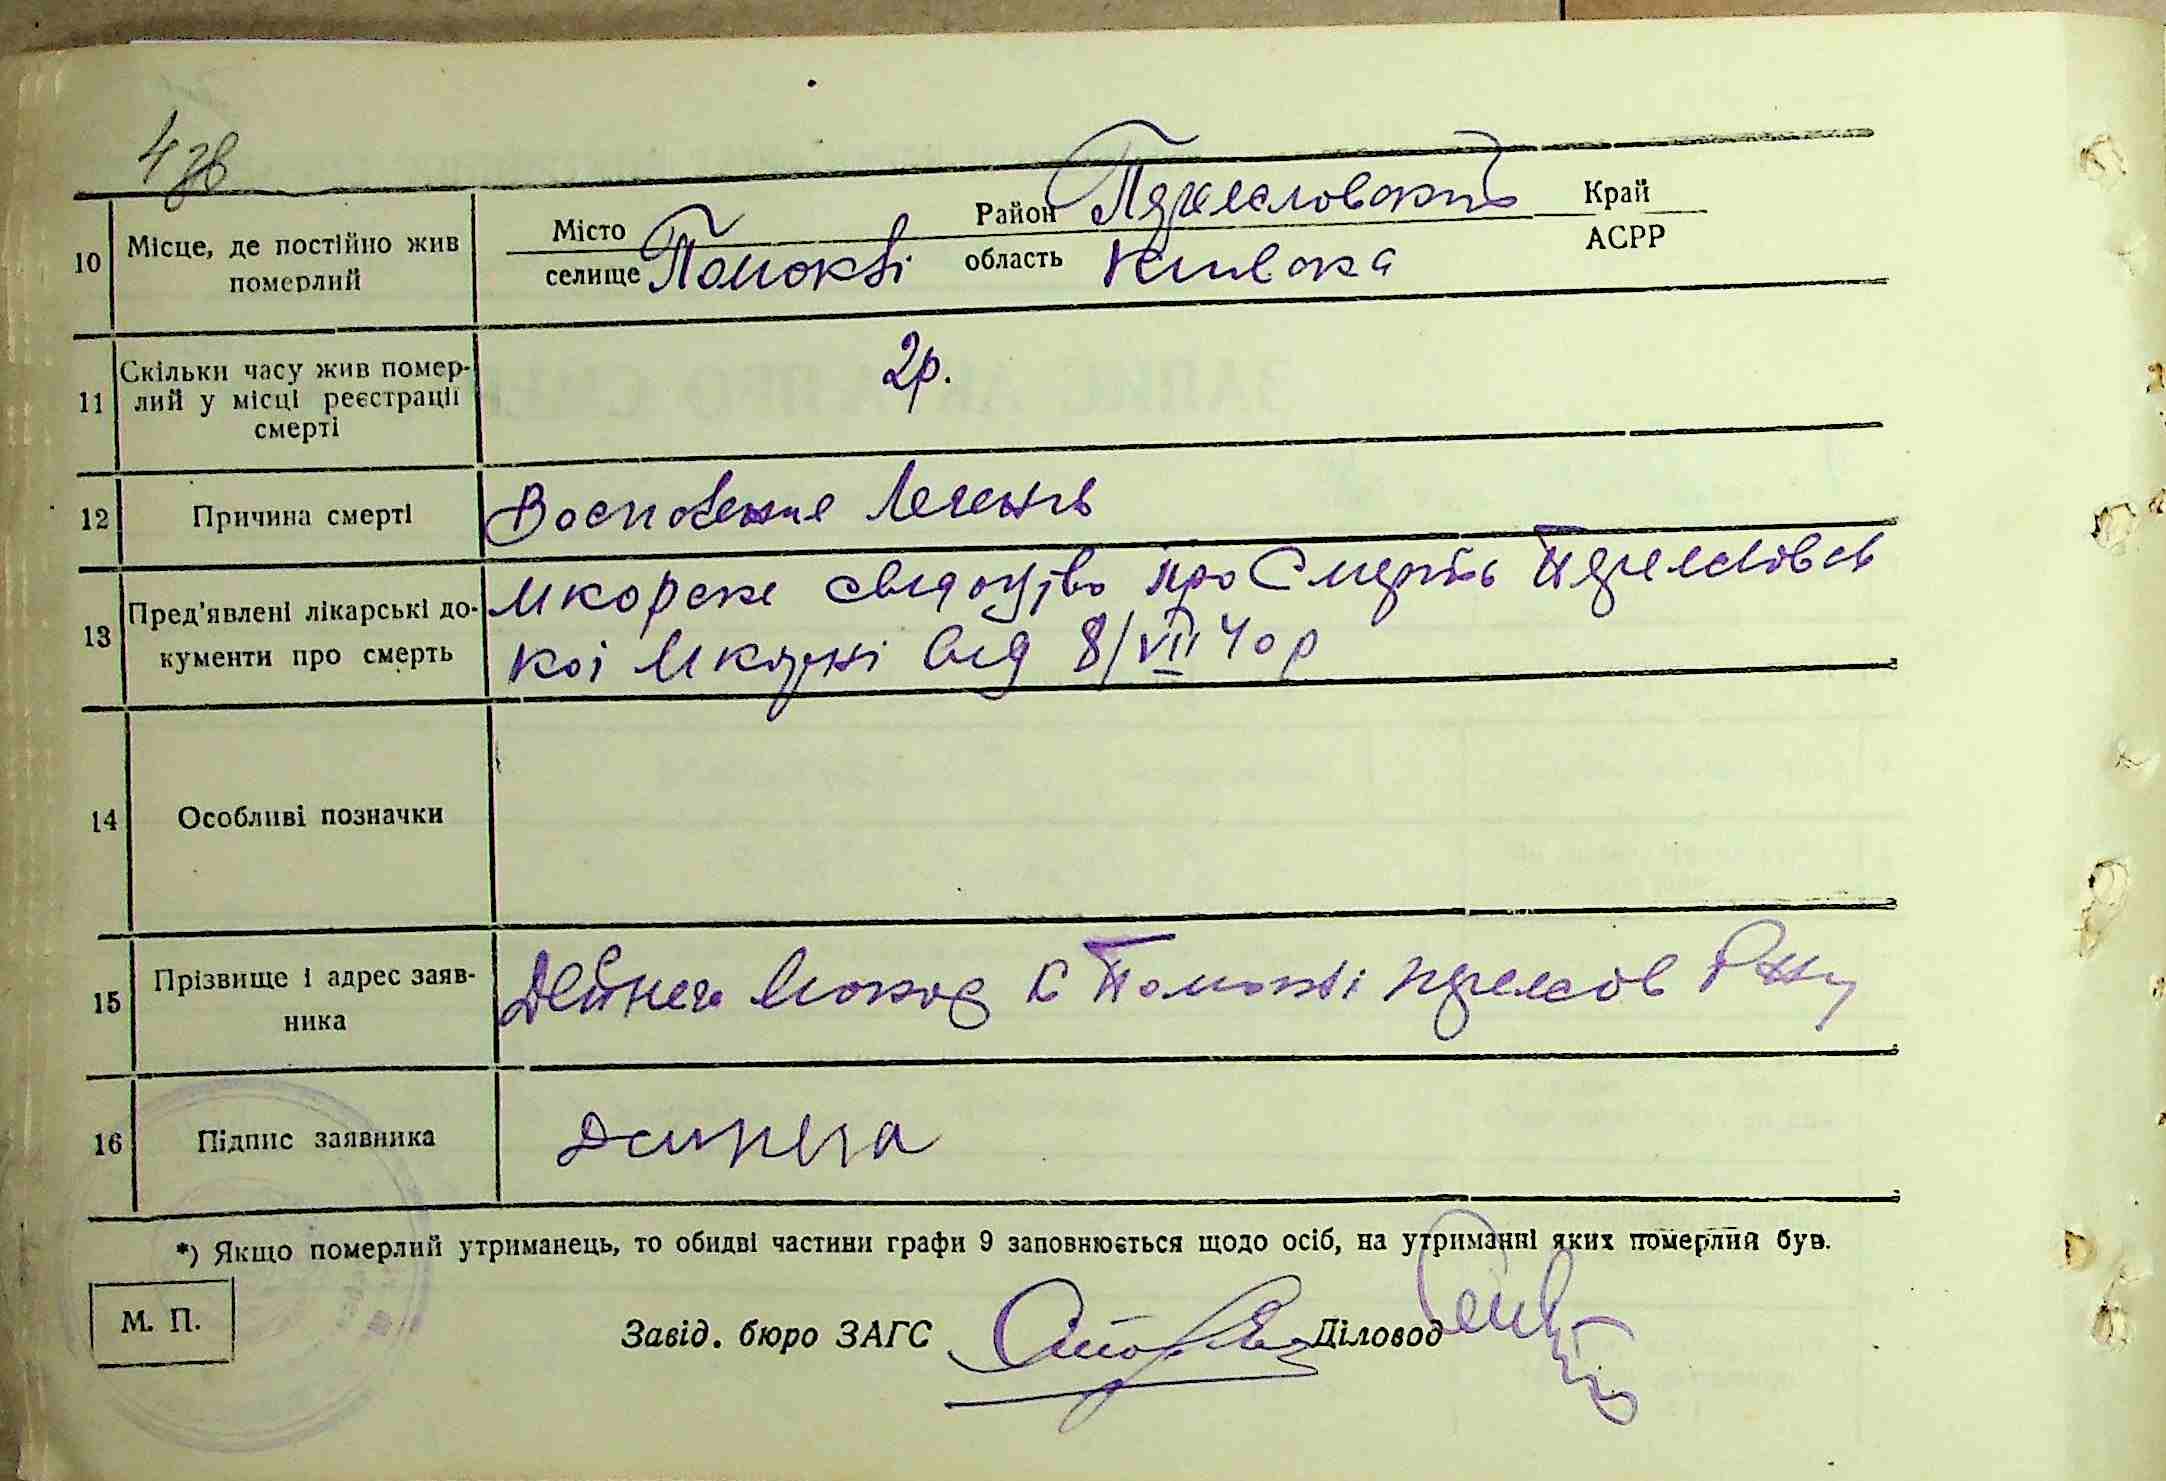 478
10 Місце, де постійно жив померлий
Місто селище Помокві Район область Переяславський Київська Край АСРР
11 Скільки часу жив померлий у місці реєстрації смерті
2р.
12 Причина смерті
Воспаление Легень
13 Пред'явлені лікарські документи про смерть
про Смерть
від 8/VII 40 р
14 Особливі позначки
15 Прізвище і адрес заявника
Дейнега с Помокві
16 Підпис заявника
Дейнега
*) Якщо померлий утриманець, то обидві частини графи 9 заповнюється щодо осіб, на утриманні яких померлий був.
М. П.
Завід. бюро ЗАГС Діловод